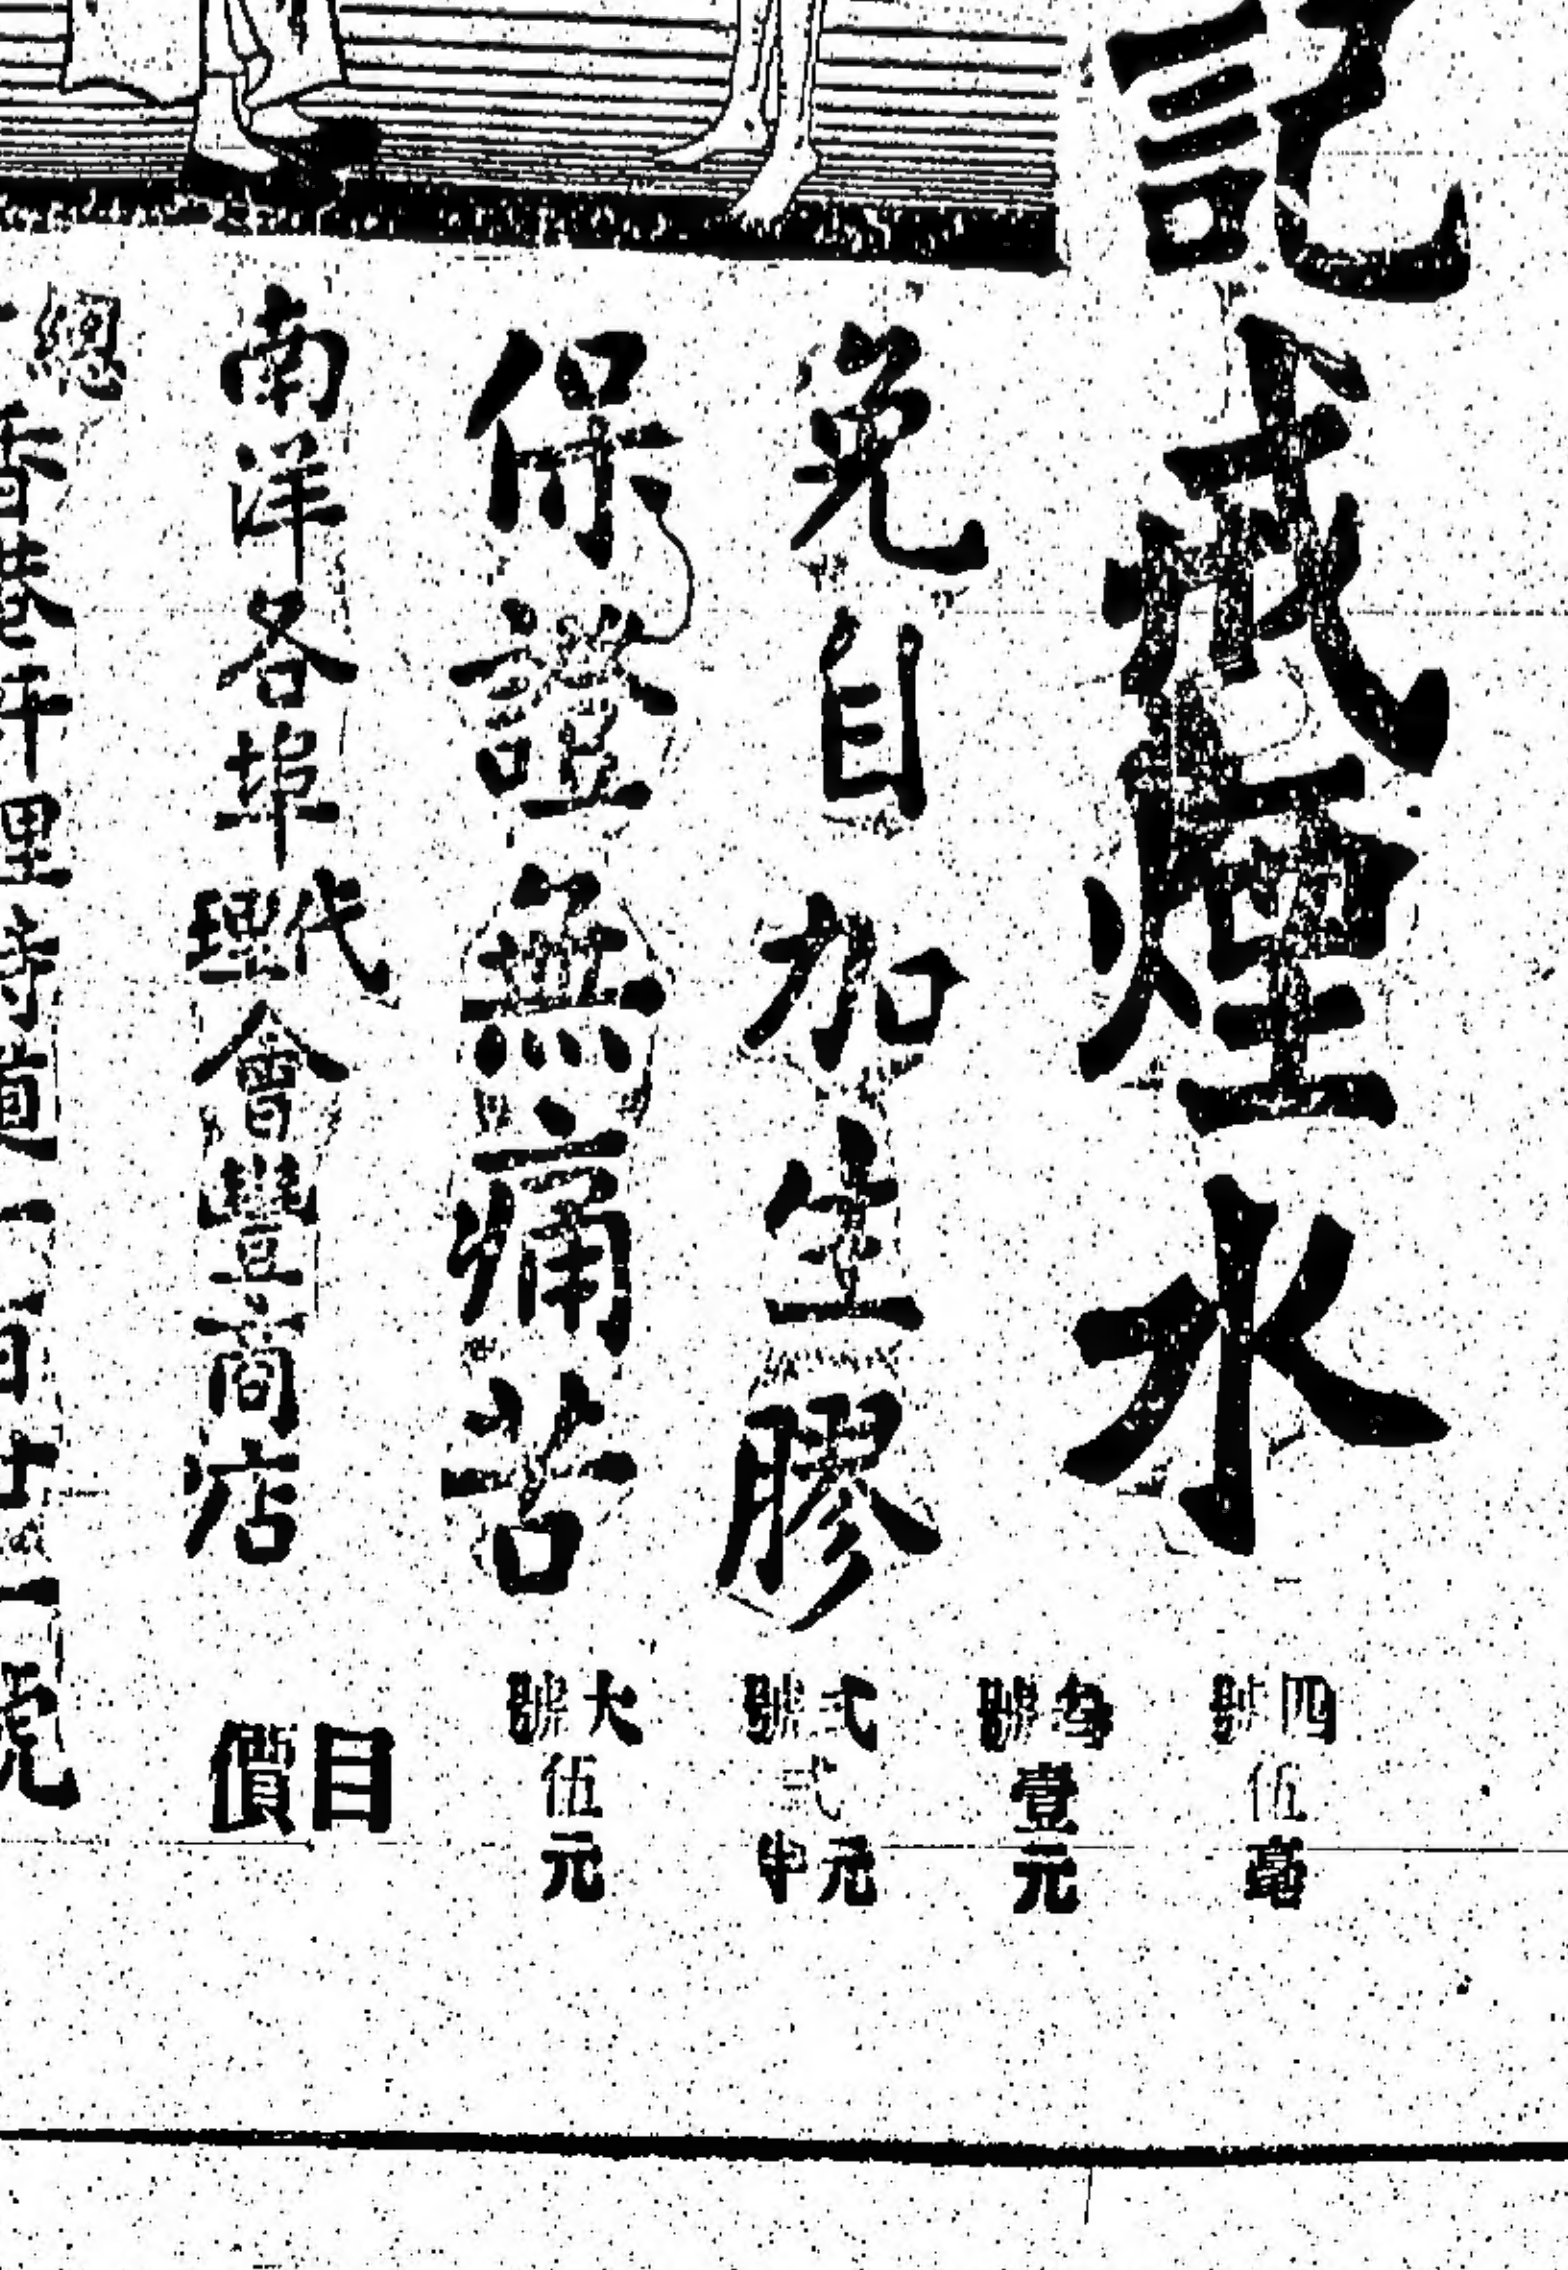 記
戒煙水
免自加生膠
保證無痛苦
南洋各埠代理會豐商店
總
香港軒里詩道一百廿一號
四號伍毫
叁號壹元
弍號弍元半
大號伍元
目價